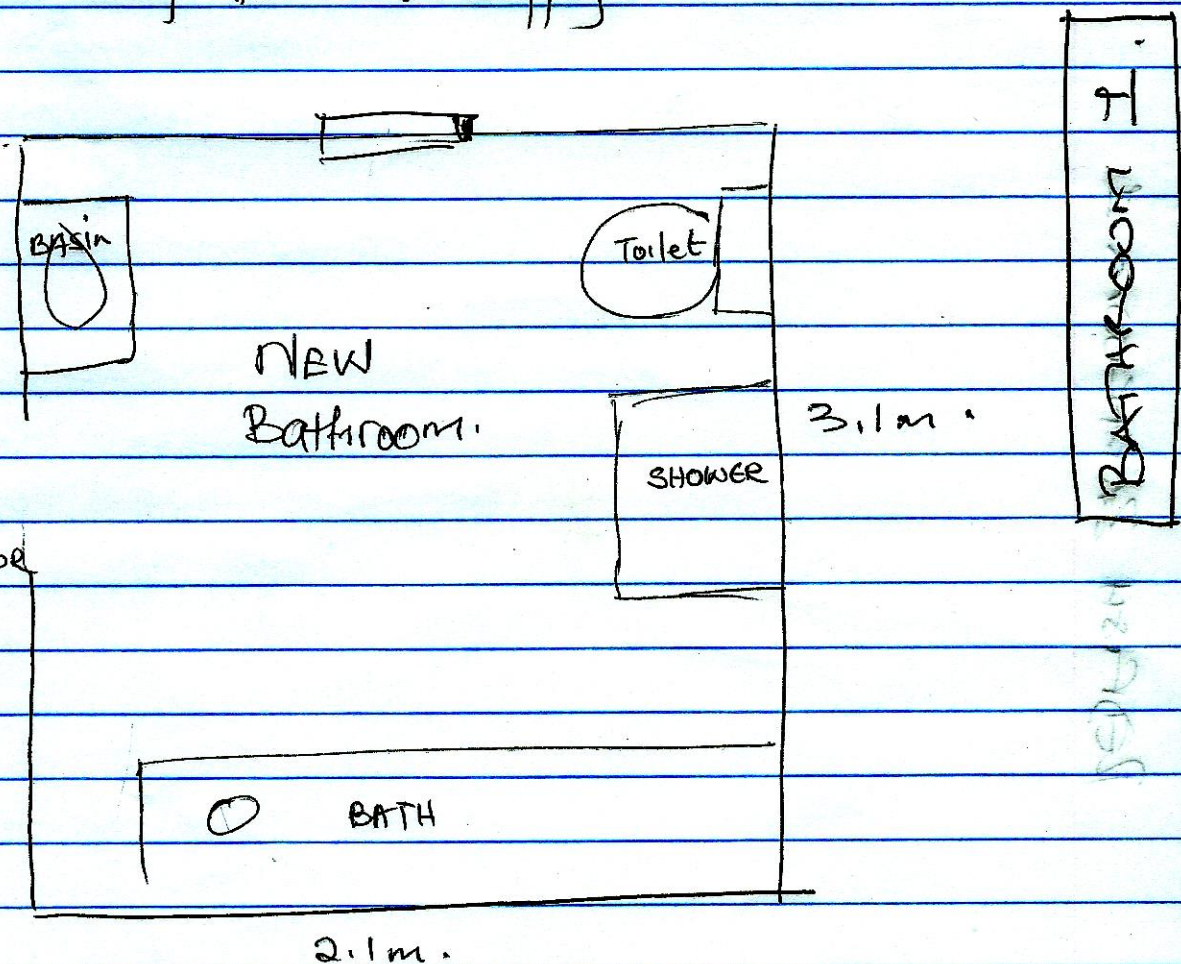 BASin
Toilet
NEW
Bathroom.
3.1m.
SHOWER
BATH
2.1m.
BATHROOM I.